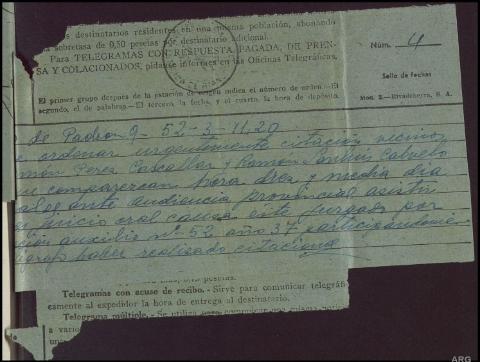 s destinatarios residentes en una misma población, abonando
sobretasa de 0,50 pesetas por destinatario adicional.
Para TELEGRAMAS CON RESPUESTA PAGADA, DE PREN-
SA Y COLACIONADOS, pídanse informes en las Oficinas Telegráficas.
Núm. 4
Sello de fechas
El primer grupo después de la estación de origen indica el número de orden.—El
segundo, el de palabras.—El tercero, la fecha, y el cuarto, la hora de depósito.
Mod. 2.—Rivadeneyra, S. A.
de Padron 9- 52-3-11,20
ordenar urgentemente citación vecinos
Perez Cascallar y Ramon
comparezcan hora diez y media dia
ante audiencia provincial asistir
juicio oral causa este juzgado por
auxilio nº 52 año 37
haber realizado citaciones
pesetas.
Telegramas con acuse de recibo.—Sirve para comunicar telegráfi-
camente al expedidor la hora de entrega al destinatario.
Telegrama múltiple.—Se utiliza para comunicar una misma
a vario
una
ARG